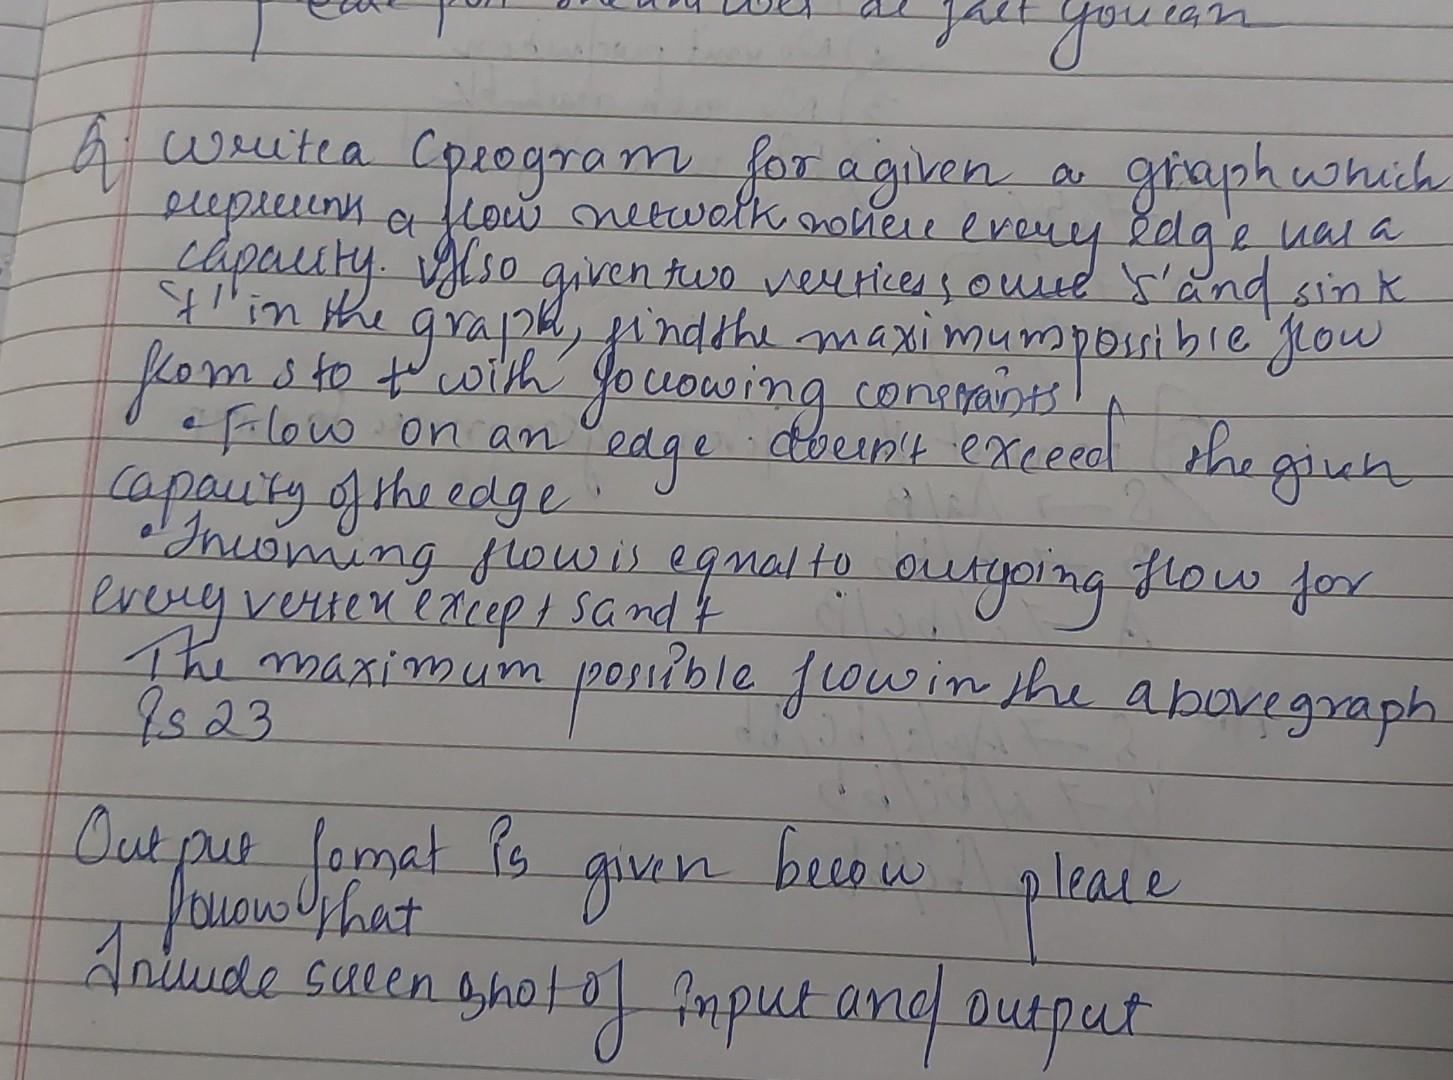 as fast you can
Q. Write a C program for a given a graph which
represents a flow network where every edge has a
capacity. Also given two vertices source 's' and sink
't' in the graph, find the maximum possible flow
from s to t with following constraints
• Flow on an edge doesn't exceed the given
capacity of the edge.
• Incoming flow is equal to outgoing flow for
every vertex except s and t
The maximum possible flow in the above graph
is 23
Output fomat is given below please
follow that
Include screen shot of input and output